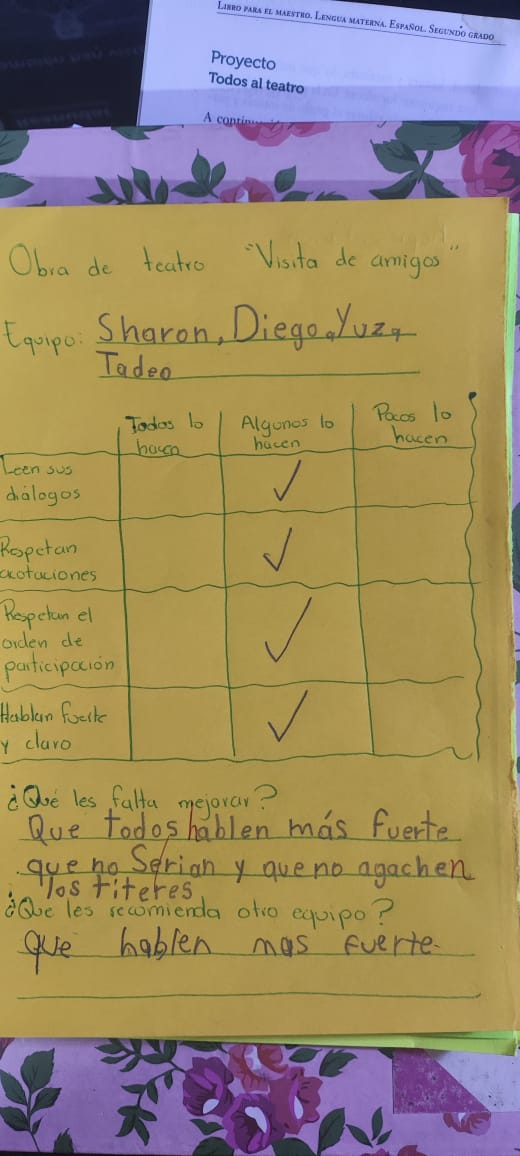 LIBRO PARA EL MAESTRO. LENGUA MATERNA. ESPAÑOL. SEGUNDO GRADO
Proyecto
Todos al teatro
A continu
Obra de teatro "Visita de amigos"
Equipo: Sharon, Diego, Yuz,
Tadeo
Todos lo hacen
Algunos lo hacen
Pocos lo hacen
Leen sus
diálogos
✓
Respetan
acotaciones
✓
Respetan el
orden de
participación
✓
Hablan fuerte
y claro
✓
¿Qué les falta mejorar?
Que todos hablen más fuerte
que no Serian y que no agachen
los titeres
¿Que les recomienda otro equipo?
que hablen mas fuerte.